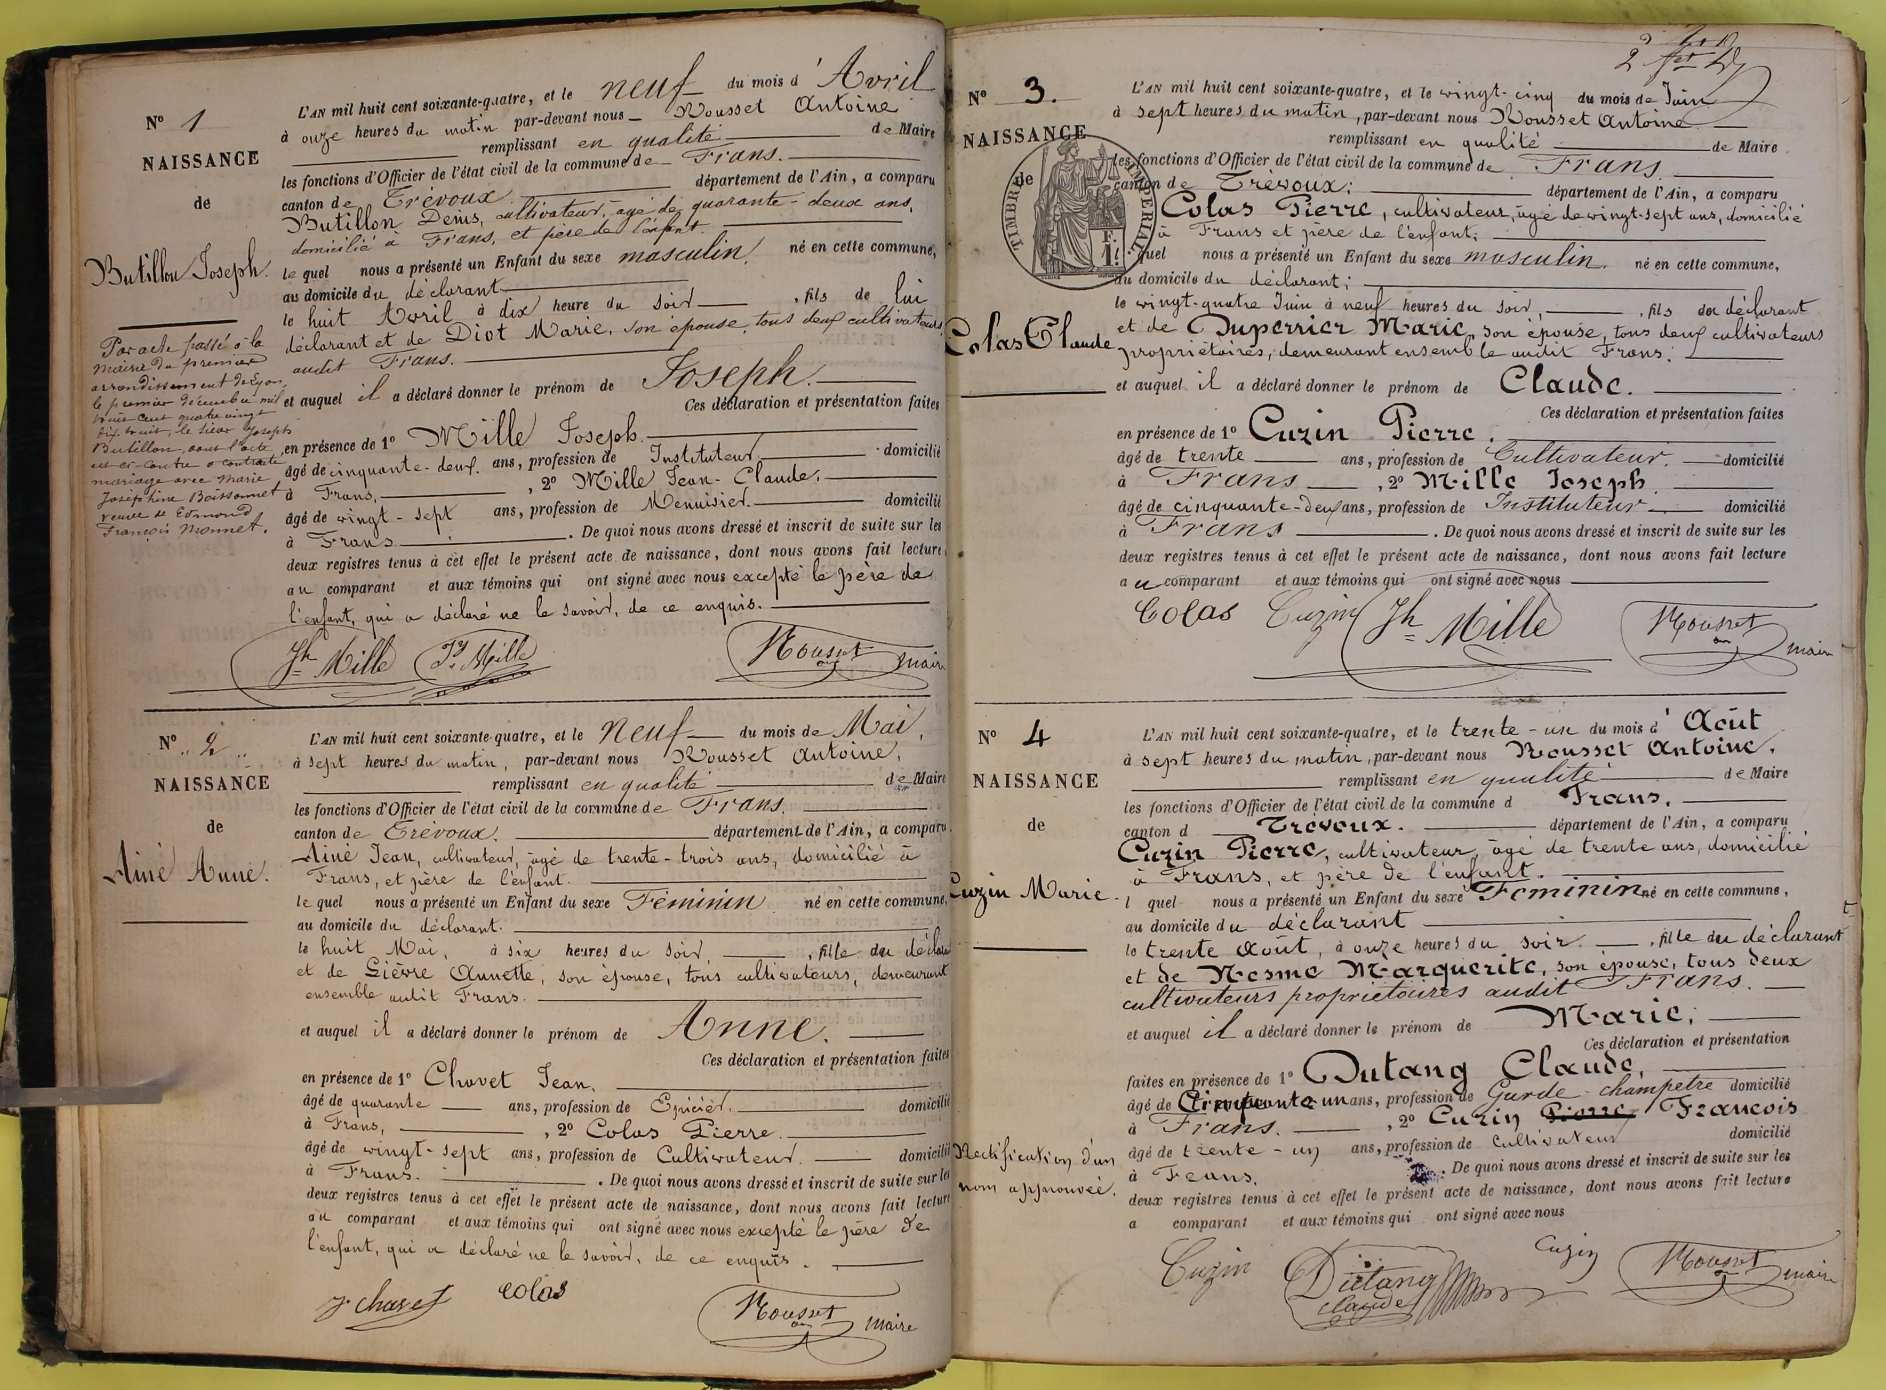 N° 1
NAISSANCE
de
Butillon Joseph.
Par acte passé à la
Mairie du premier
arrondissement de Lyon,
le premier décembre mil
huit cent quatre vingt
dix huit, le sieur Joseph
Butillon, dont l'acte
est ci-contre a contracté
mariage avec Marie
Joséphine Boissonnet
veuve de Edmond
François Monnet.
L'AN mil huit cent soixante-quatre, et le neuf du mois d'Avril
à onze heures du matin par-devant nous Rousset Antoine
remplissant en qualité de Maire
les fonctions d'Officier de l'état civil de la commune de Frans.
canton de Trévoux. département de l'Ain, a comparu
Butillon Denis, cultivateur, âgé de quarante-deux ans,
domicilié à Frans, et père de l'enfant.
le quel nous a présenté un Enfant du sexe masculin, né en cette commune,
au domicile du déclarant
le huit Avril à dix heure du soir, fils de lui
déclarant et de Diot Marie, son épouse, tous deux cultivateurs
audit Frans.
et auquel il a déclaré donner le prénom de Joseph.
Ces déclaration et présentation faites
en présence de 1° Mille Joseph.
âgé de cinquante-deux ans, profession de Instituteur, domicilié
à Frans, , 2° Mille Jean-Claude,
âgé de vingt-sept ans, profession de Menuisier. domicilié
à Frans . De quoi nous avons dressé et inscrit de suite sur les
deux registres tenus à cet effet le présent acte de naissance, dont nous avons fait lecture
au comparant et aux témoins qui ont signé avec nous excepté le père de
l'enfant, qui a déclaré ne le savoir, de ce enquis.
Jh Mille Mille Rousset maire
N° 2
NAISSANCE
de
Ainé Anne.
L'AN mil huit cent soixante-quatre, et le neuf du mois de Mai,
à sept heures du matin, par-devant nous Rousset Antoine,
remplissant en qualité de Maire
les fonctions d'Officier de l'état civil de la commune de Frans,
canton de Trévoux. département de l'Ain, a comparu
Ainé Jean, cultivateur, âgé de trente-trois ans, domicilié à
Frans, et père de l'enfant.
le quel nous a présenté un Enfant du sexe Féminin né en cette commune,
au domicile du déclarant.
le huit Mai, à six heures du soir, , fille du déclarant
et de Lièvre Annette, son épouse, tous cultivateurs, demeurant
ensemble audit Frans.
et auquel il a déclaré donner le prénom de Anne.
Ces déclaration et présentation faites
en présence de 1° Chavet Jean,
âgé de quarante ans, profession de Epicier. domicilié
à Frans, , 2° Colas Pierre.
âgé de vingt-sept ans, profession de Cultivateur. domicilié
à Frans. . De quoi nous avons dressé et inscrit de suite sur les
deux registres tenus à cet effet le présent acte de naissance, dont nous avons fait lecture
au comparant et aux témoins qui ont signé avec nous excepté le père de
l'enfant, qui a déclaré ne le savoir, de ce enquis.
Chavet Colas Rousset maire
2
N° 3.
NAISSANCE
de
TIMBRE IMPERIAL
Colas Claude
L'AN mil huit cent soixante-quatre, et le vingt-cinq du mois de Juin
à sept heures du matin, par-devant nous Rousset Antoine
remplissant en qualité de Maire
les fonctions d'Officier de l'état civil de la commune de Frans
canton de Trévoux; département de l'Ain, a comparu
Colas Pierre, cultivateur, âgé de vingt-sept ans, domicilié
à Frans et père de l'enfant;
quel nous a présenté un Enfant du sexe masculin né en cette commune,
au domicile du déclarant;
le vingt-quatre Juin à neuf heures du soir, , fils du déclarant
et de Duperrier Marie, son épouse, tous deux cultivateurs
propriétaires, demeurant ensemble audit Frans;
et auquel il a déclaré donner le prénom de Claude.
Ces déclaration et présentation faites
en présence de 1° Cuzin Pierre,
âgé de trente ans, profession de Cultivateur. domicilié
à Frans , 2° Mille Joseph
âgé de cinquante-deux ans, profession de Instituteur domicilié
à Frans . De quoi nous avons dressé et inscrit de suite sur les
deux registres tenus à cet effet le présent acte de naissance, dont nous avons fait lecture
au comparant et aux témoins qui ont signé avec nous
Colas Cuzin Jh Mille Rousset maire
N° 4
NAISSANCE
de
Cuzin Marie.
Rectification d'un
nom approuvée.
L'AN mil huit cent soixante-quatre, et le trente-un du mois d'Août
à sept heures du matin, par-devant nous Rousset Antoine,
remplissant en qualité de Maire
les fonctions d'Officier de l'état civil de la commune d Frans,
canton d Trévoux. département de l'Ain, a comparu
Cuzin Pierre, cultivateur, âgé de trente ans, domicilié
à Frans, et père de l'enfant.
l quel nous a présenté un Enfant du sexe Féminin né en cette commune,
au domicile du déclarant
le trente Août, à onze heures du soir. , fille du déclarant
et de Nesme Marguerite, son épouse, tous deux
cultivateurs propriétaires audit Frans.
et auquel il a déclaré donner le prénom de Marie,
Ces déclaration et présentation
faites en présence de 1° Dutang Claude,
âgé de Cinquante un ans, profession de Garde-champêtre domicilié
à Frans. , 2° Cuzin Pierre Francois
âgé de trente-un ans, profession de cultivateur domicilié
à Frans. . De quoi nous avons dressé et inscrit de suite sur les
deux registres tenus à cet effet le présent acte de naissance, dont nous avons fait lecture
a comparant et aux témoins qui ont signé avec nous
Cuzin Dutang Claude Cuzin Rousset maire